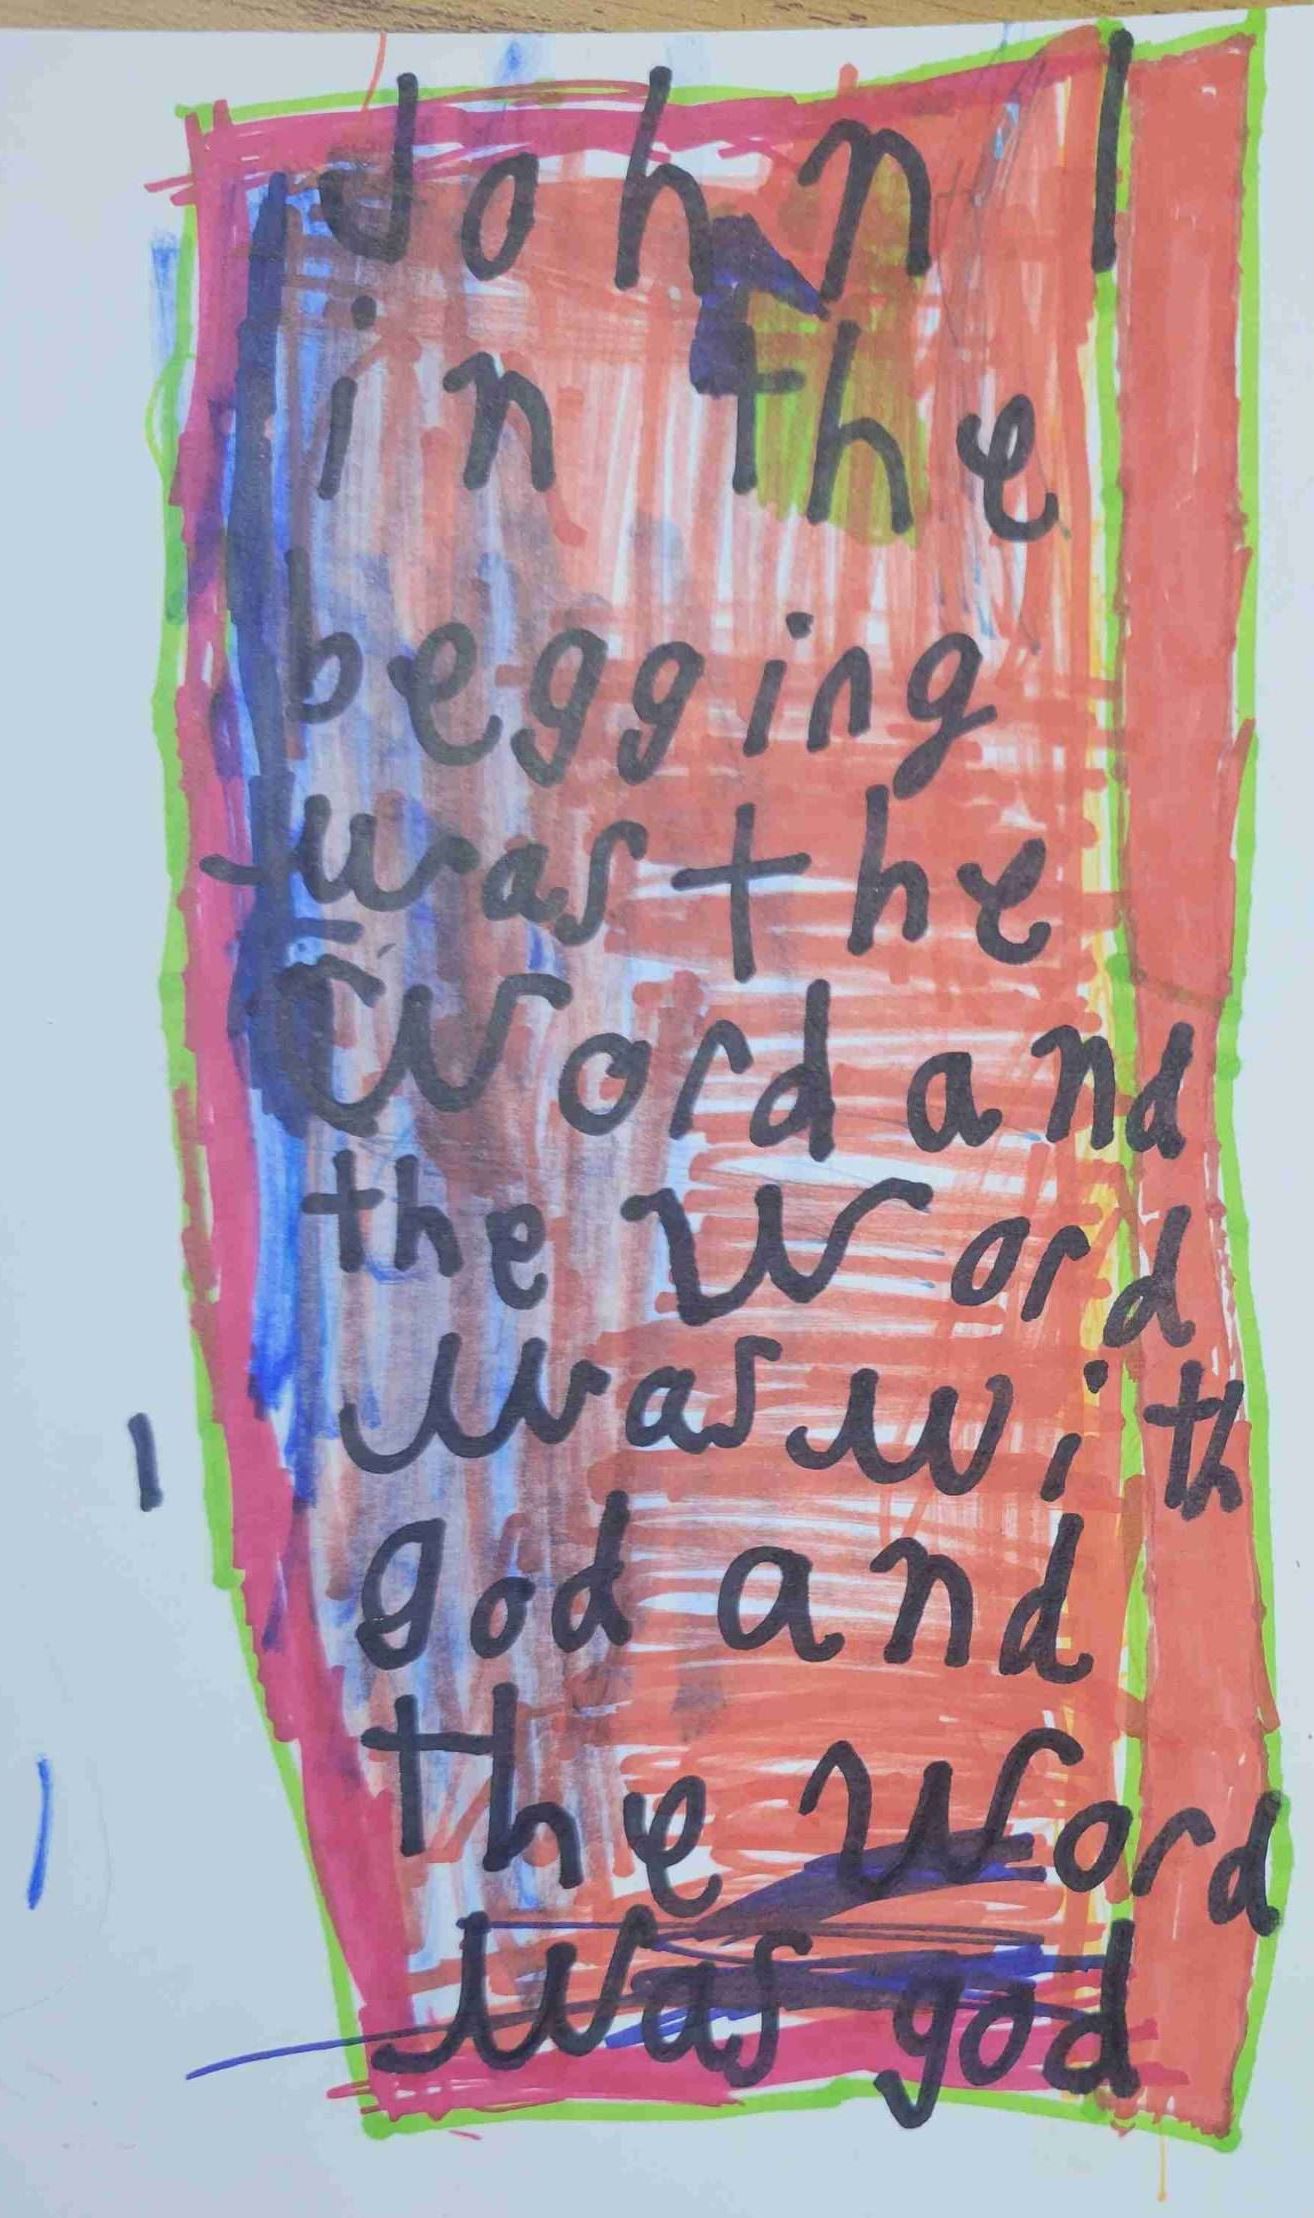 John 1
in the
begging
was the
Word and
the Word
was with
god and
the Word
was god